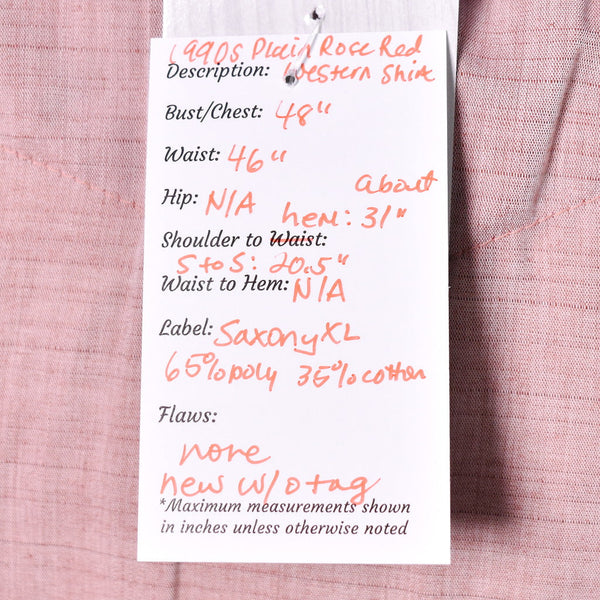 1990s Plain Rose Red
Description: Western Shirt
Bust/Chest: 48"
Waist: 46"
about
Hip: N/A hem: 31"
Shoulder to Waist:
S to S: 20.5"
Waist to Hem: N/A
Label: Saxony XL
65% poly 35% cotton
Flaws:
none
new w/o tag
*Maximum measurements shown
in inches unless otherwise noted